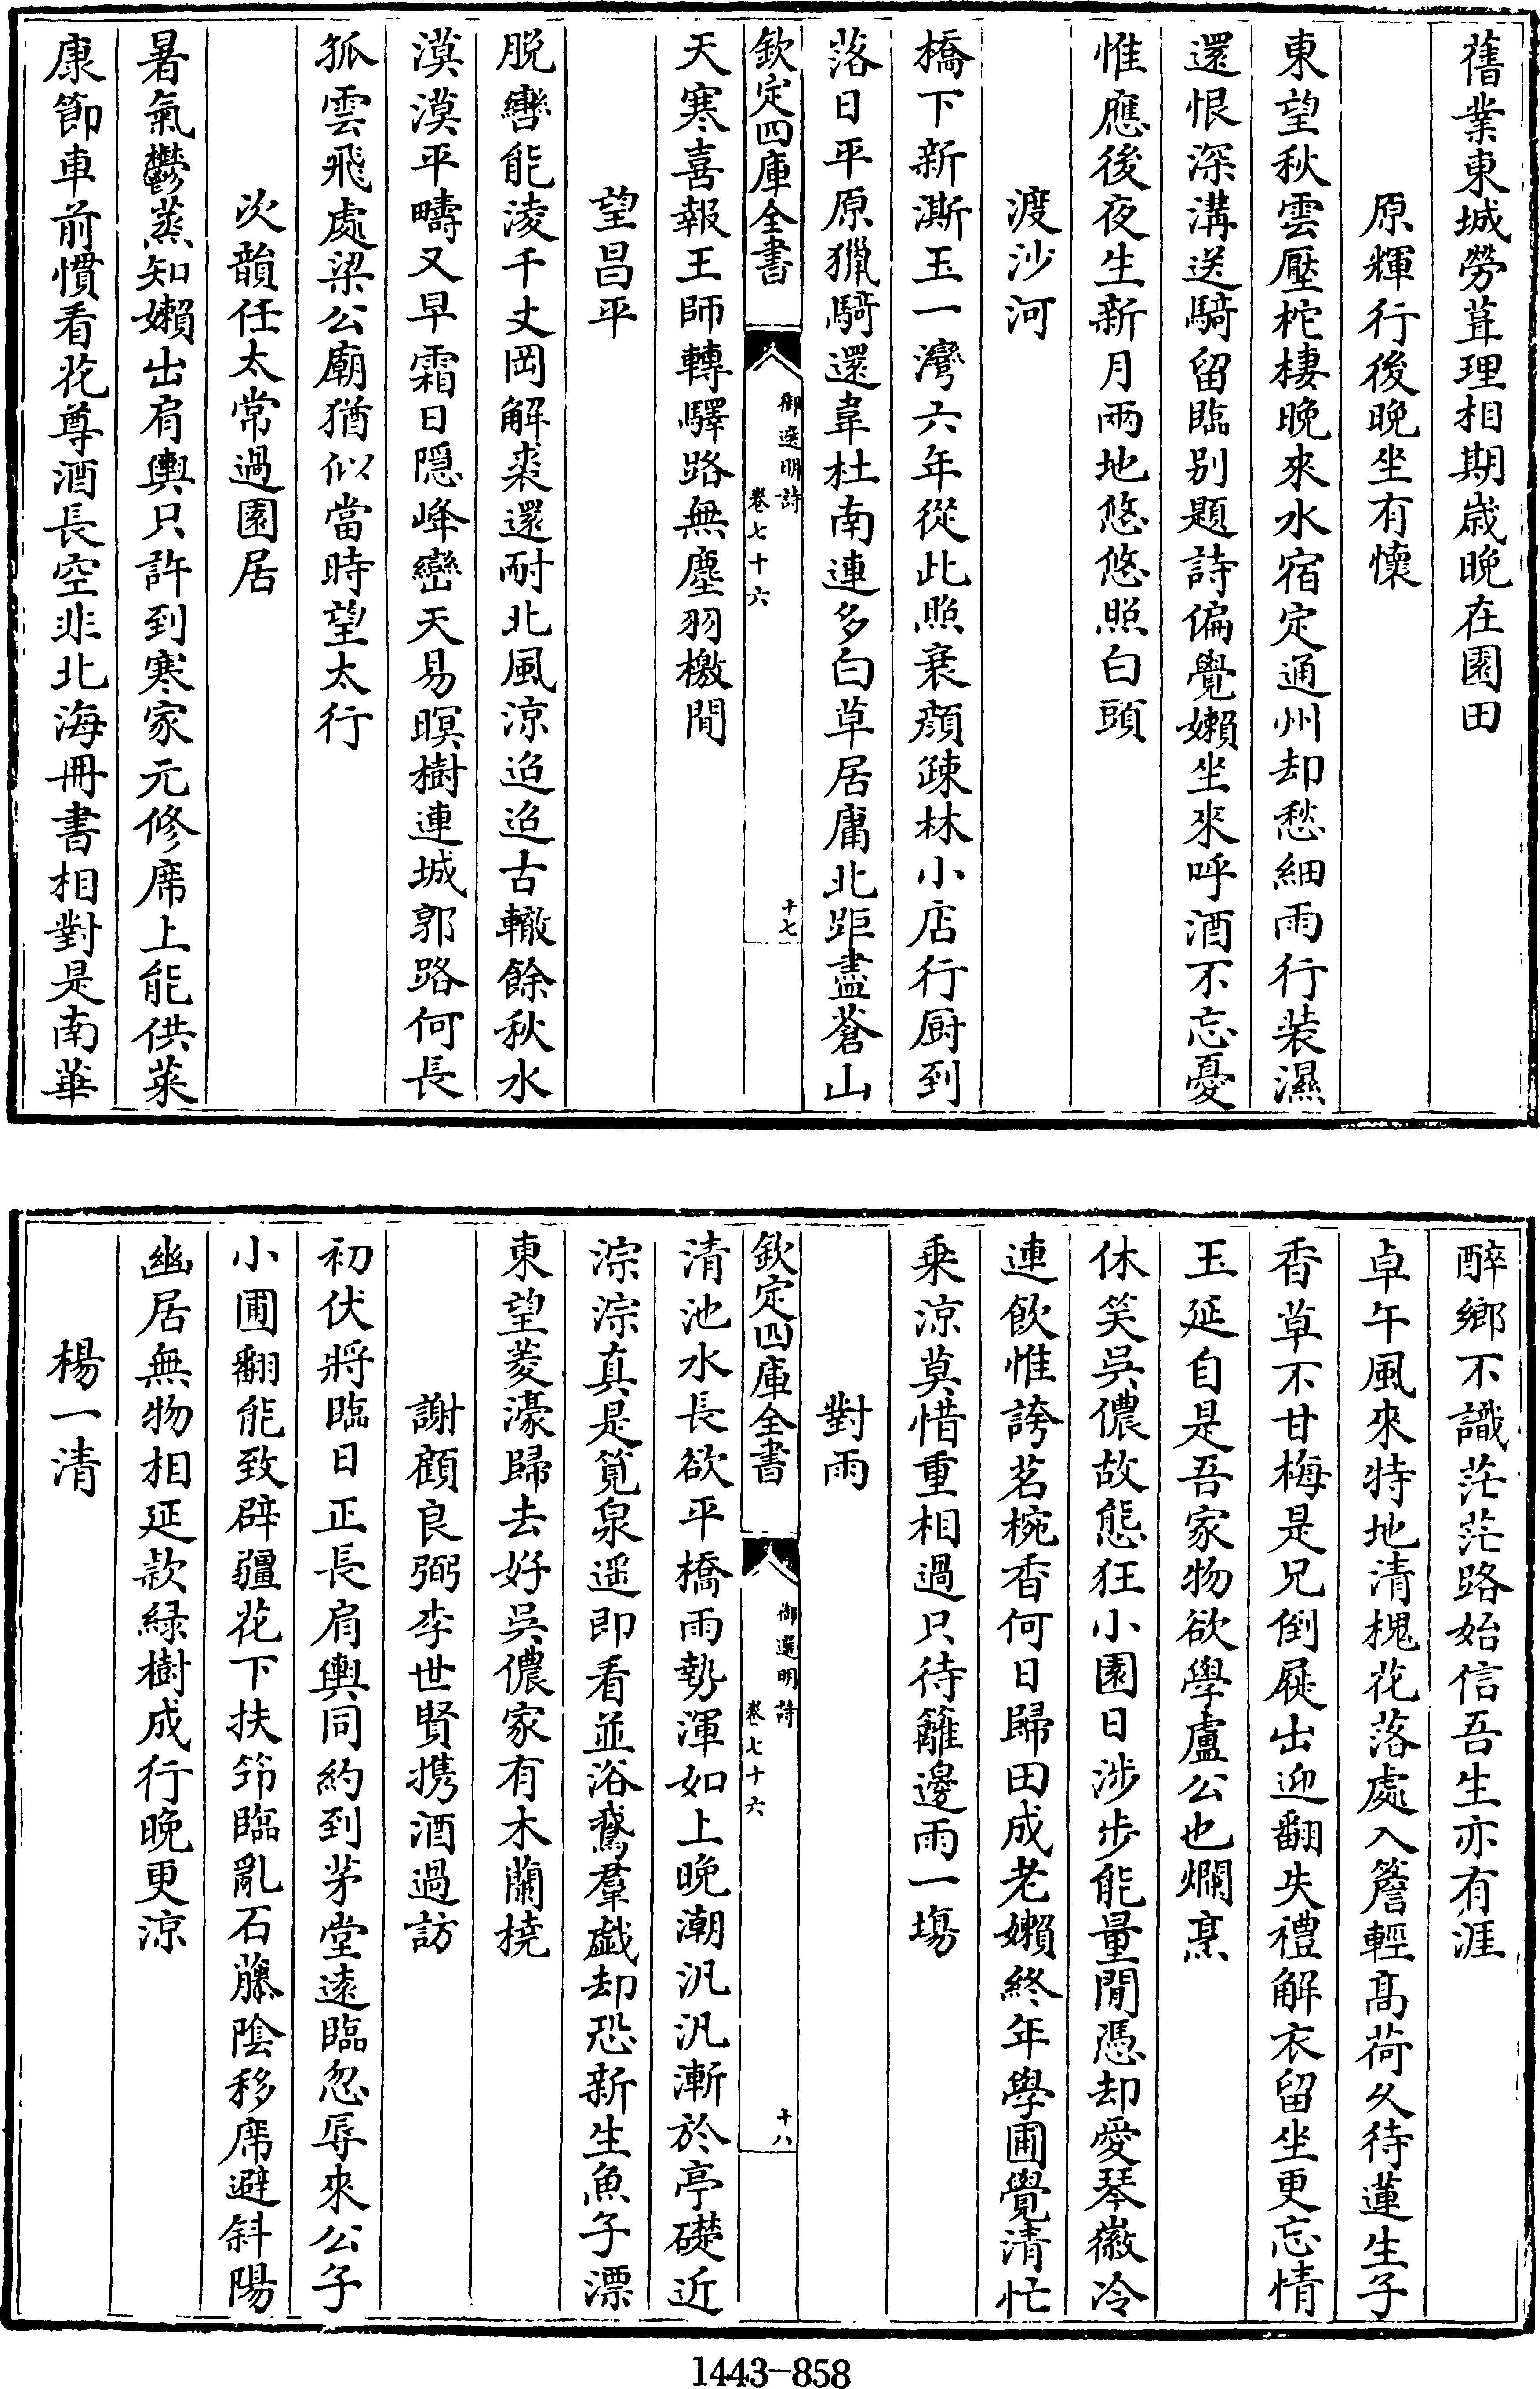 舊業東城勞葺理相期歳晚在園田
原輝行後晚坐有懷
東望秋雲壓柁樓晚來水宿定通州却愁細雨行装濕
還恨深溝送騎留臨别題詩偏覺嬾坐來呼酒不忘憂
惟應後夜生新月兩地悠悠照白頭
渡沙河
橋下新澌玉一灣六年從此照衰顔疎林小店行厨到
落日平原獵騎還韋杜南連多白草居庸北距盡蒼山
欽定四庫全書
御選明詩
卷七十六
十七
天寒喜報王師轉驛路無塵羽檄閒
望昌平
脱轡能淩千丈岡解裘還耐北風凉迢迢古轍餘秋水
漠漠平疇又早霜日隠峰巒天易暝樹連城郭路何長
孤雲飛處梁公廟猶似當時望太行
次韻任太常過園居
暑氣鬱蒸知嬾出肩輿只許到寒家元修席上能供菜
康節車前慣看花尊酒長空非北海冊書相對是南華
醉鄉不識茫茫路始信吾生亦有涯
卓午風來特地清槐花落處入簷輕髙荷久待蓮生子
香草不甘梅是兄倒屐出迎翻失禮解衣留坐更忘情
玉延自是吾家物欲學盧公也爛烹
休笑吳儂故態狂小園日渉步能量閒憑却愛琴徽冷
連飲惟誇茗椀香何日歸田成老嬾終年學圃覺清忙
乗涼莫惜重相過只待籬邊雨一塲
對雨
欽定四庫全書
御選明詩
卷七十六
十八
清池水長欲平橋雨勢渾如上晚潮汎汎漸於亭礎近
淙淙真是筧泉遥即看並浴鵞羣戲却恐新生魚子漂
東望菱濠歸去好吳儂家有木蘭橈
謝顧良弼李世賢携酒過訪
初伏將臨日正長肩輿同約到茅堂逺臨忽辱來公子
小圃翻能致辟疆花下扶笻臨亂石藤陰移席避斜陽
幽居無物相延款緑樹成行晚更涼
楊一清
1443-858